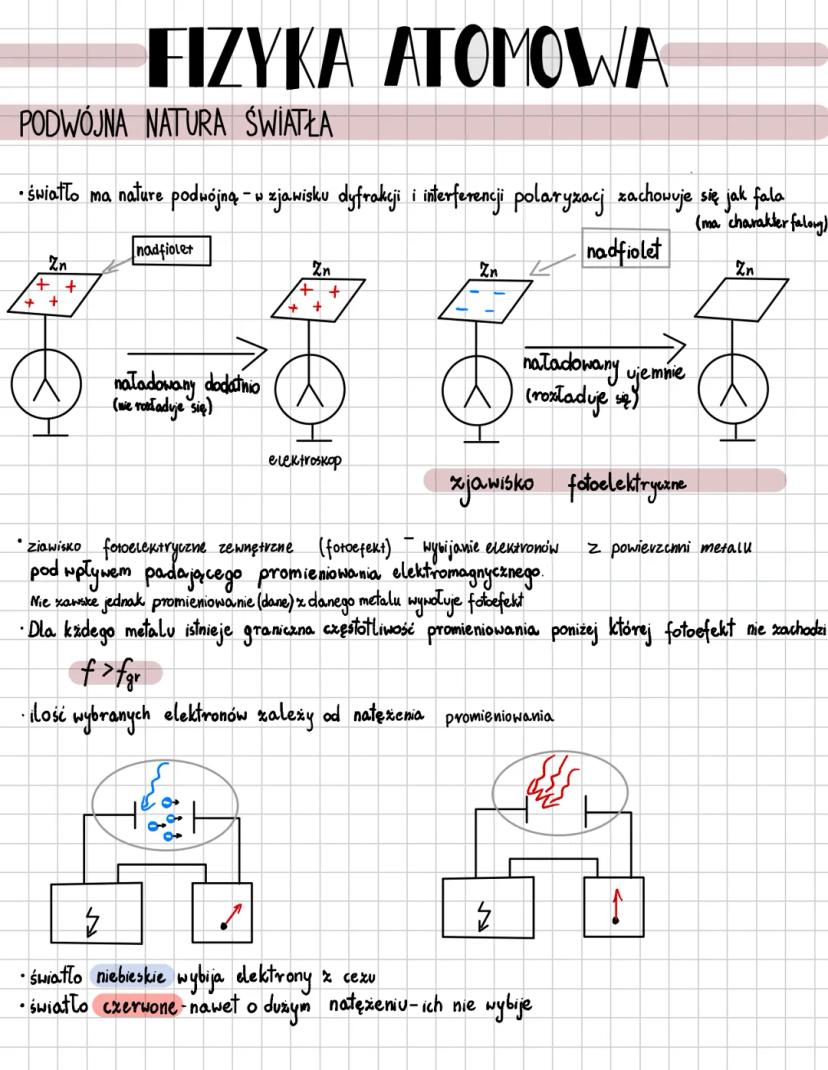 FIZYKA ATOMOWA
PODWÓJNA NATURA ŚWIATŁA
• światło ma nature podwójną - w zjawisku dyfrakcji i interferencji polaryzacj zachowuje się jak fala
(ma charakter falowy)
nadfiolet
Zn
+ + + +
Zn
+ + + +
naładowany dodatnio
(nie rozładuje się)
elektroskop
nadfiolet
Zn
- - - -
Zn
naładowany ujemnie
(rozładuje się)
zjawisko fotoelektryczne
• zjawisko fotoelektryczne zewnętrzne (fotoefekt) - wybijanie elektronów z powierzchni metalu
pod wpływem padającego promieniowania elektromagnycznego.
Nie zawsze jednak promieniowanie (dane) z danego metalu wywołuje fotoefekt
• Dla kżdego metalu istnieje graniczna częstotliwość promieniowania poniżej której fotoefekt nie zachodzi
f > fgr
• ilość wybranych elektronów zależy od natężenia promieniowania
• światło niebieskie wybija elektrony z cezu
• światło czerwone - nawet o dużym natężeniu - ich nie wybije